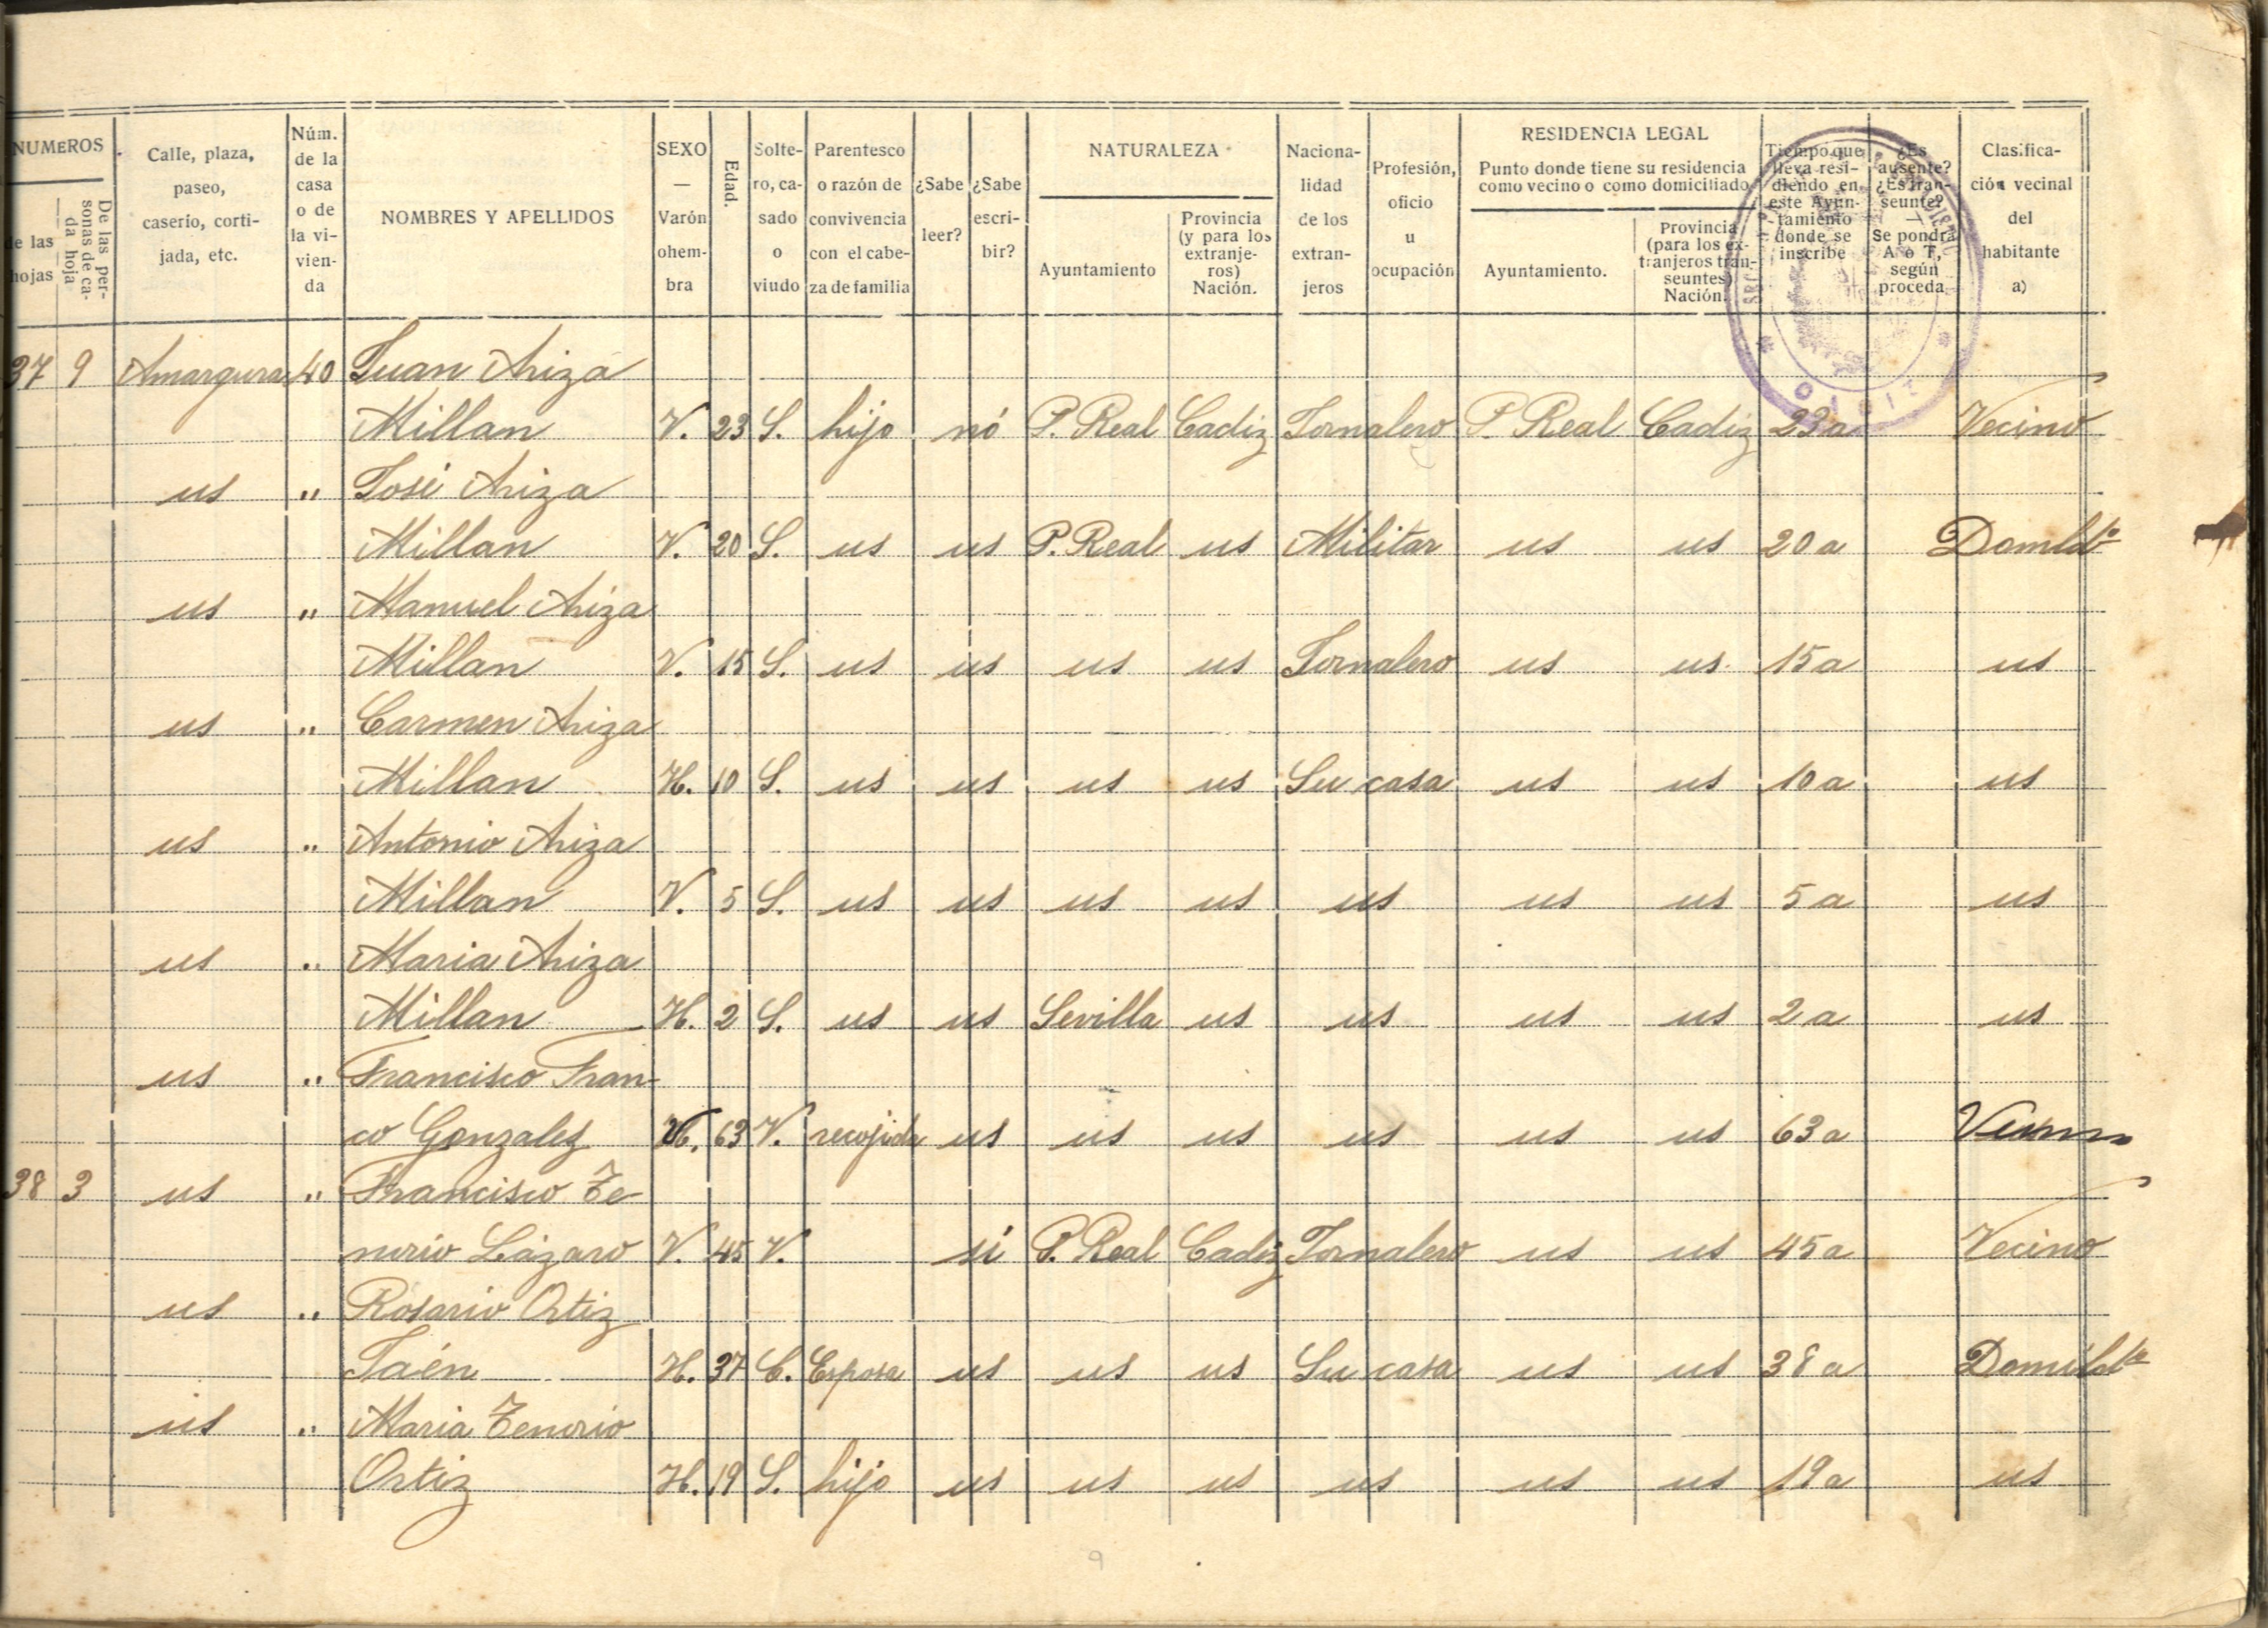 NUMEROS
de las hojas
De las personas de cada hoja
Calle, plaza, paseo, caserío, cortijada, etc.
Núm. de la casa o de la vivienda
NOMBRES Y APELLIDOS
SEXO — Varón ohembra
Edad.
Soltero, casado o viudo
Parentesco o razón de convivencia con el cabeza de familia
¿Sabe leer?
¿Sabe escribir?
NATURALEZA
Ayuntamiento
Provincia (y para los extranjeros) Nación.
Nacionalidad de los extranjeros
Profesión, oficio u ocupación
RESIDENCIA LEGAL
Punto donde tiene su residencia como vecino o como domiciliado
Ayuntamiento.
Provincia (para los extranjeros transeuntes) Nación.
Tiempo que lleva residiendo en este Ayuntamiento donde se inscribe
¿Es ausente? ¿Es transeunte? — Se pondrá A o T, según proceda
Clasificación vecinal del habitante a)
37 9 Amargura 40 Juan Ariza
Millan V. 23 S. hijo nó P. Real Cadiz Jornalero P. Real Cadiz 23 a Vecino
us " José Ariza
Millan V. 20 S. us us P. Real us Militar us us 20 a Domldº
us " Manuel Ariza
Millan V. 15 S. us us us us Jornalero us us 15 a us
us " Carmen Ariza
Millan H. 10 S. us us us us Su casa us us 10 a us
us " Antonio Ariza
Millan V. 5 S. us us us us us us us 5 a us
us " Maria Ariza
Millan H. 2 S. us us Sevilla us us us us 2 a us
us " Francisco Fran-
co Gonzalez 63 V. recojida us us us us us us 63 a Vecino
38 3 us " Francisco Te
norio Lázaro V. 45 V. si P. Real Cadiz Jornalero us us 45 a Vecino
us " Rosario Ortiz
Jaén H. 37 C. Esposa us us us Su casa us us 38 a Domildª
us " Maria Tenorio
Ortiz H. 19 S. hijo us us us us us us 19 a us
9